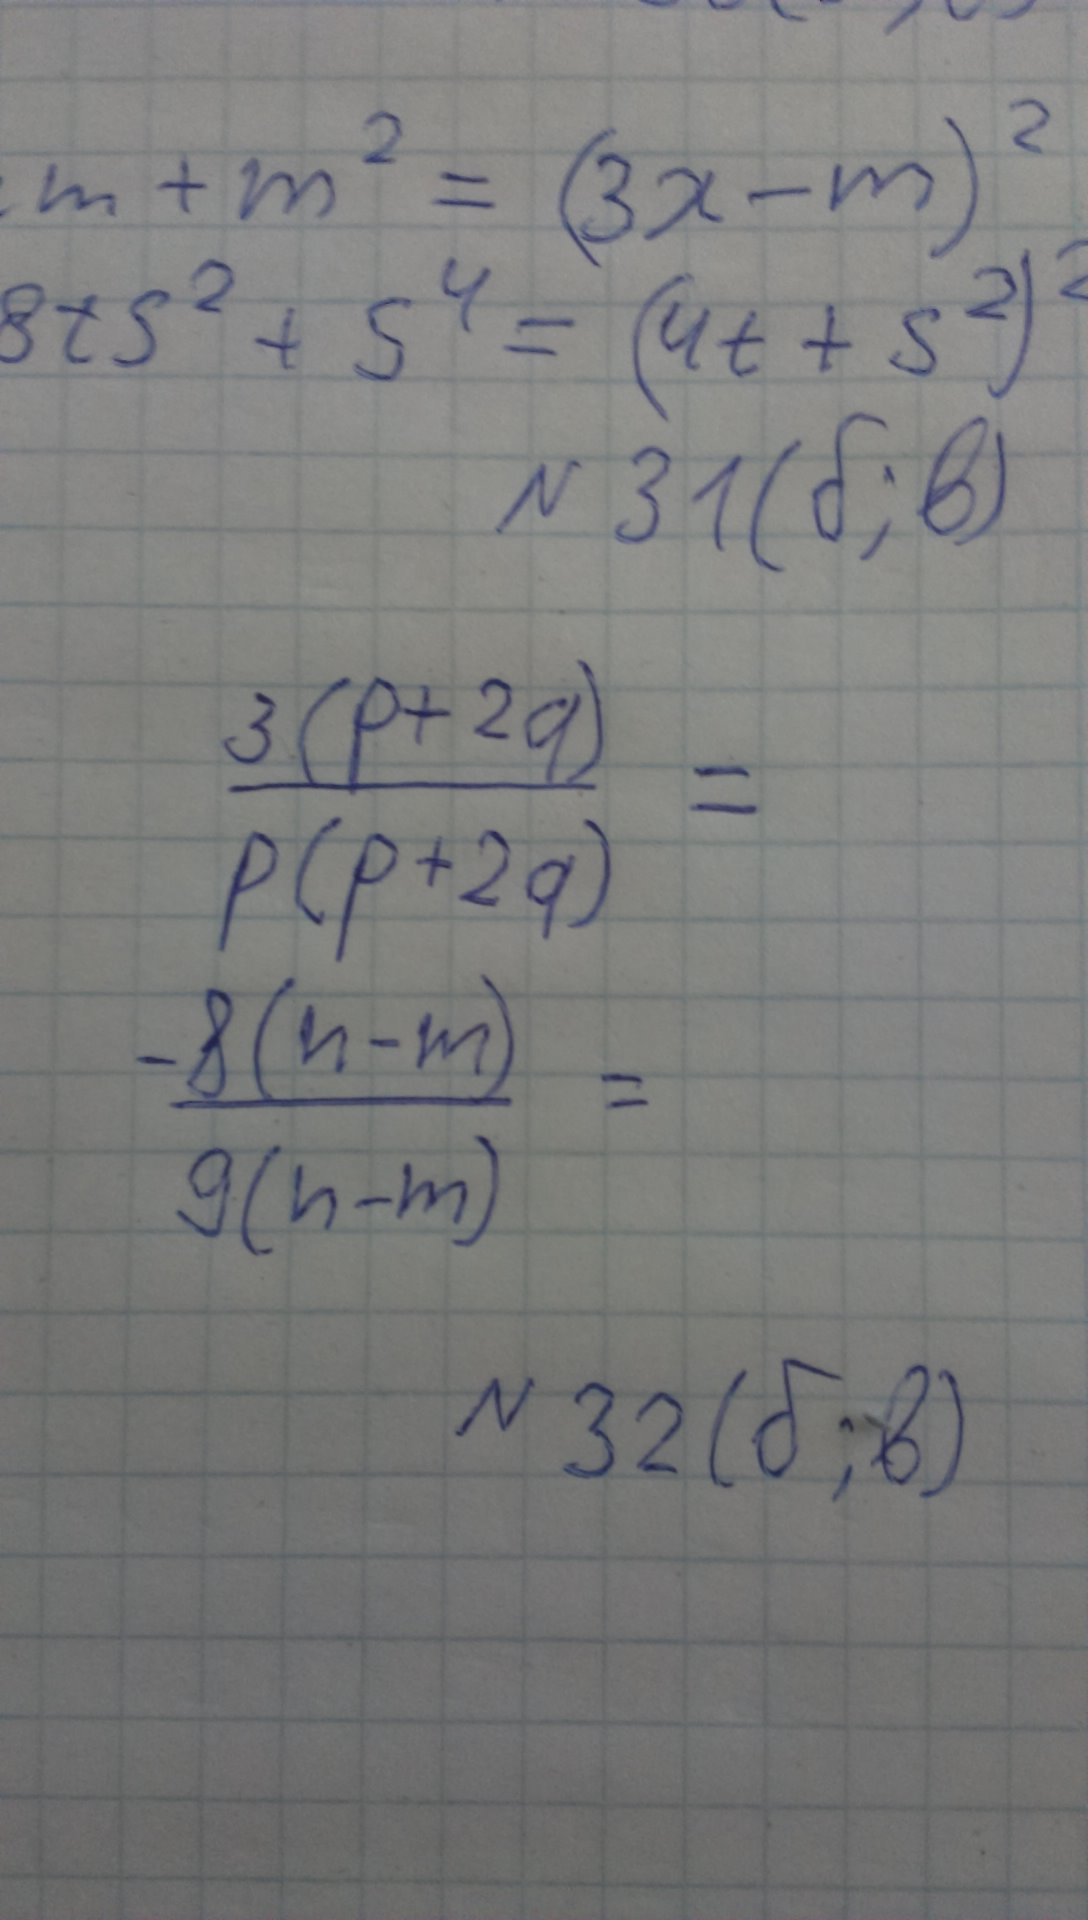 m + m² = (3x - m)²
8ts² + s⁴ = (4t + s²)²
N 31(б; в)
3(p + 2q)
=
p(p + 2q)
-8(n - m)
=
9(n - m)
N 32(б; в)